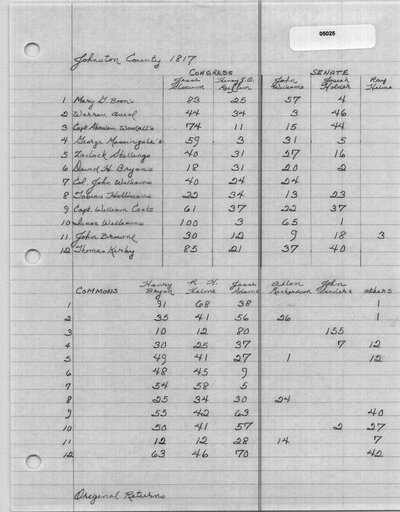 05025
Johston County 1817
CONGRESS SENATE
Jesse Slocum Henry J.G. Ruffin John Williams Josiah Holder Ray Helme
1 Mary G. Boon's 83 25 57 4
2 Warren Anial 44 34 3 46
3 Capt Absalem Woodall's 74 11 15 44
4 George Massingale's 59 3 31 5
5 Zadock Stallings 40 31 27 16
6 David H. Bryans 18 31 20 2
7 Col John Williams 40 24 24
8 Tobias Hollimans 22 34 13 23
9 Capt. William Coats 61 37 22 37
10 Isaac Williams 100 3 65 1
11 John Browne 30 12 9 18 3
12 Thomas Kirby 85 21 37 40
COMMONS Henry Bryan R. H. Helme Jesse Adams Allen Richardson John Sander's others
1 91 68 38 1
2 35 41 56 26 1
3 10 12 80 155
4 30 25 37 7 12
5 49 41 27 1 12
6 48 45 9
7 54 58 5
8 25 34 30 24
9 55 42 63 40
10 50 41 57 2 27
11 12 12 28 14 7
12 63 46 70 42
Original Returns